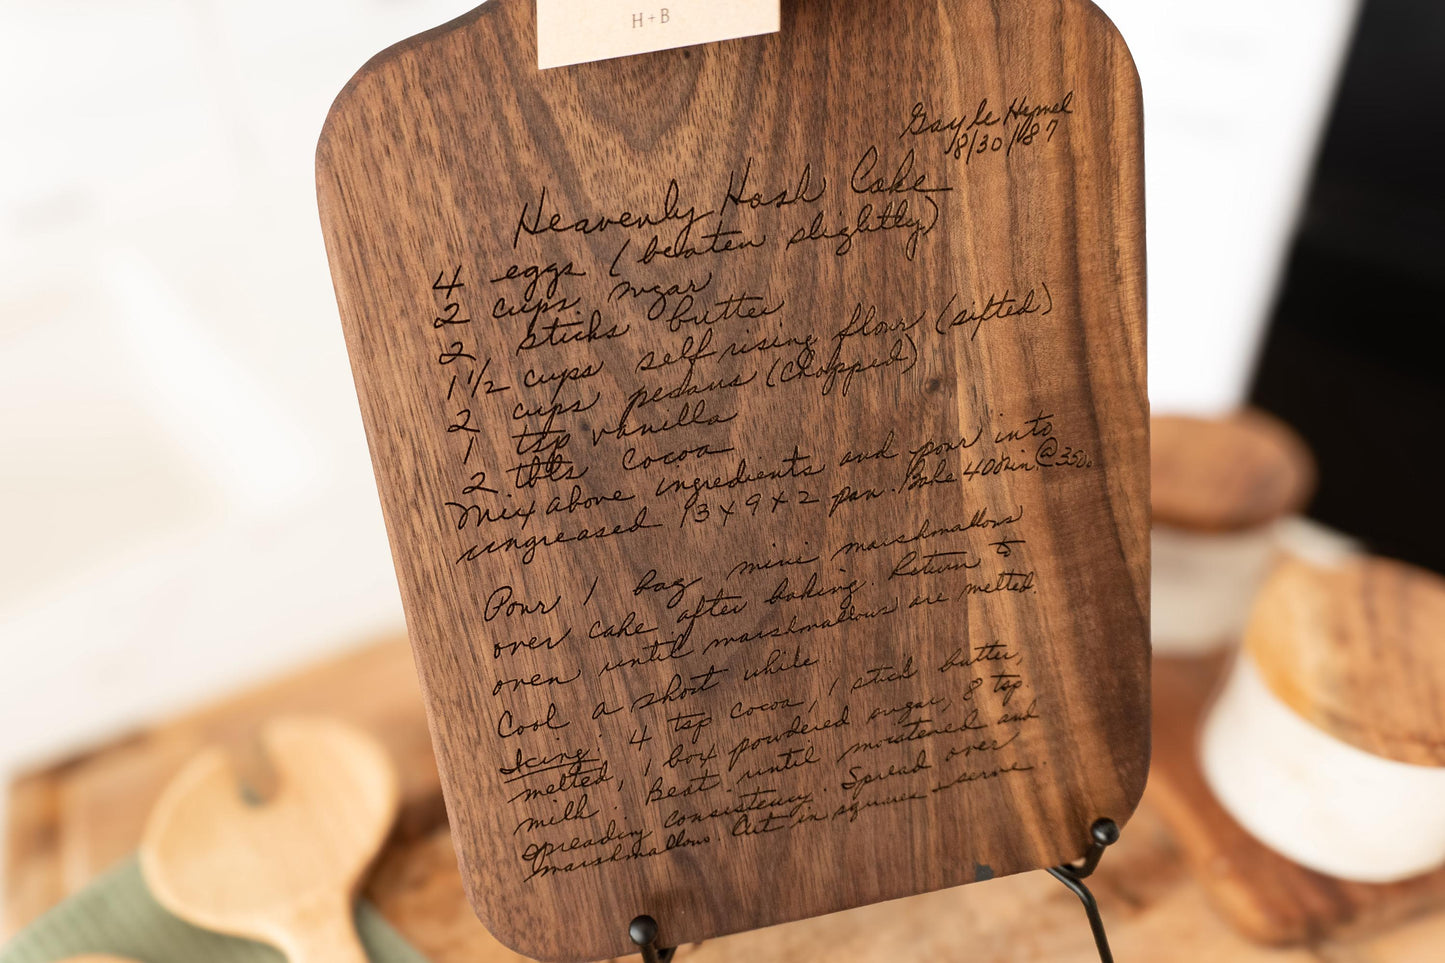 H + B
Gayle Hymel
8/30/87
Heavenly Hash Cake
4 eggs (beaten slightly)
2 cups sugar
2 sticks butter
1 1/2 cups self rising flour (sifted)
2 cups pecans (chopped)
1 tsp vanilla
2 tbls cocoa
Mix above ingredients and pour into
ungreased 13 x 9 x 2 pan. Bake 40 min. @ 350°
Pour 1 bag mini marshmallows
over cake after baking. Return to
oven until marshmallows are melted.
Cool a short while.
Icing: 4 tsp cocoa, 1 stick butter,
melted, 1 box powdered sugar, 8 tsp.
milk. Beat until moistened and
spreading consistency. Spread over
marshmallows. Cut in squares – serve.